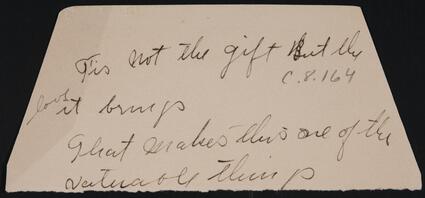 Tis not the gift But the
C.8.164
love it brings
That makes this one of the
valuable things